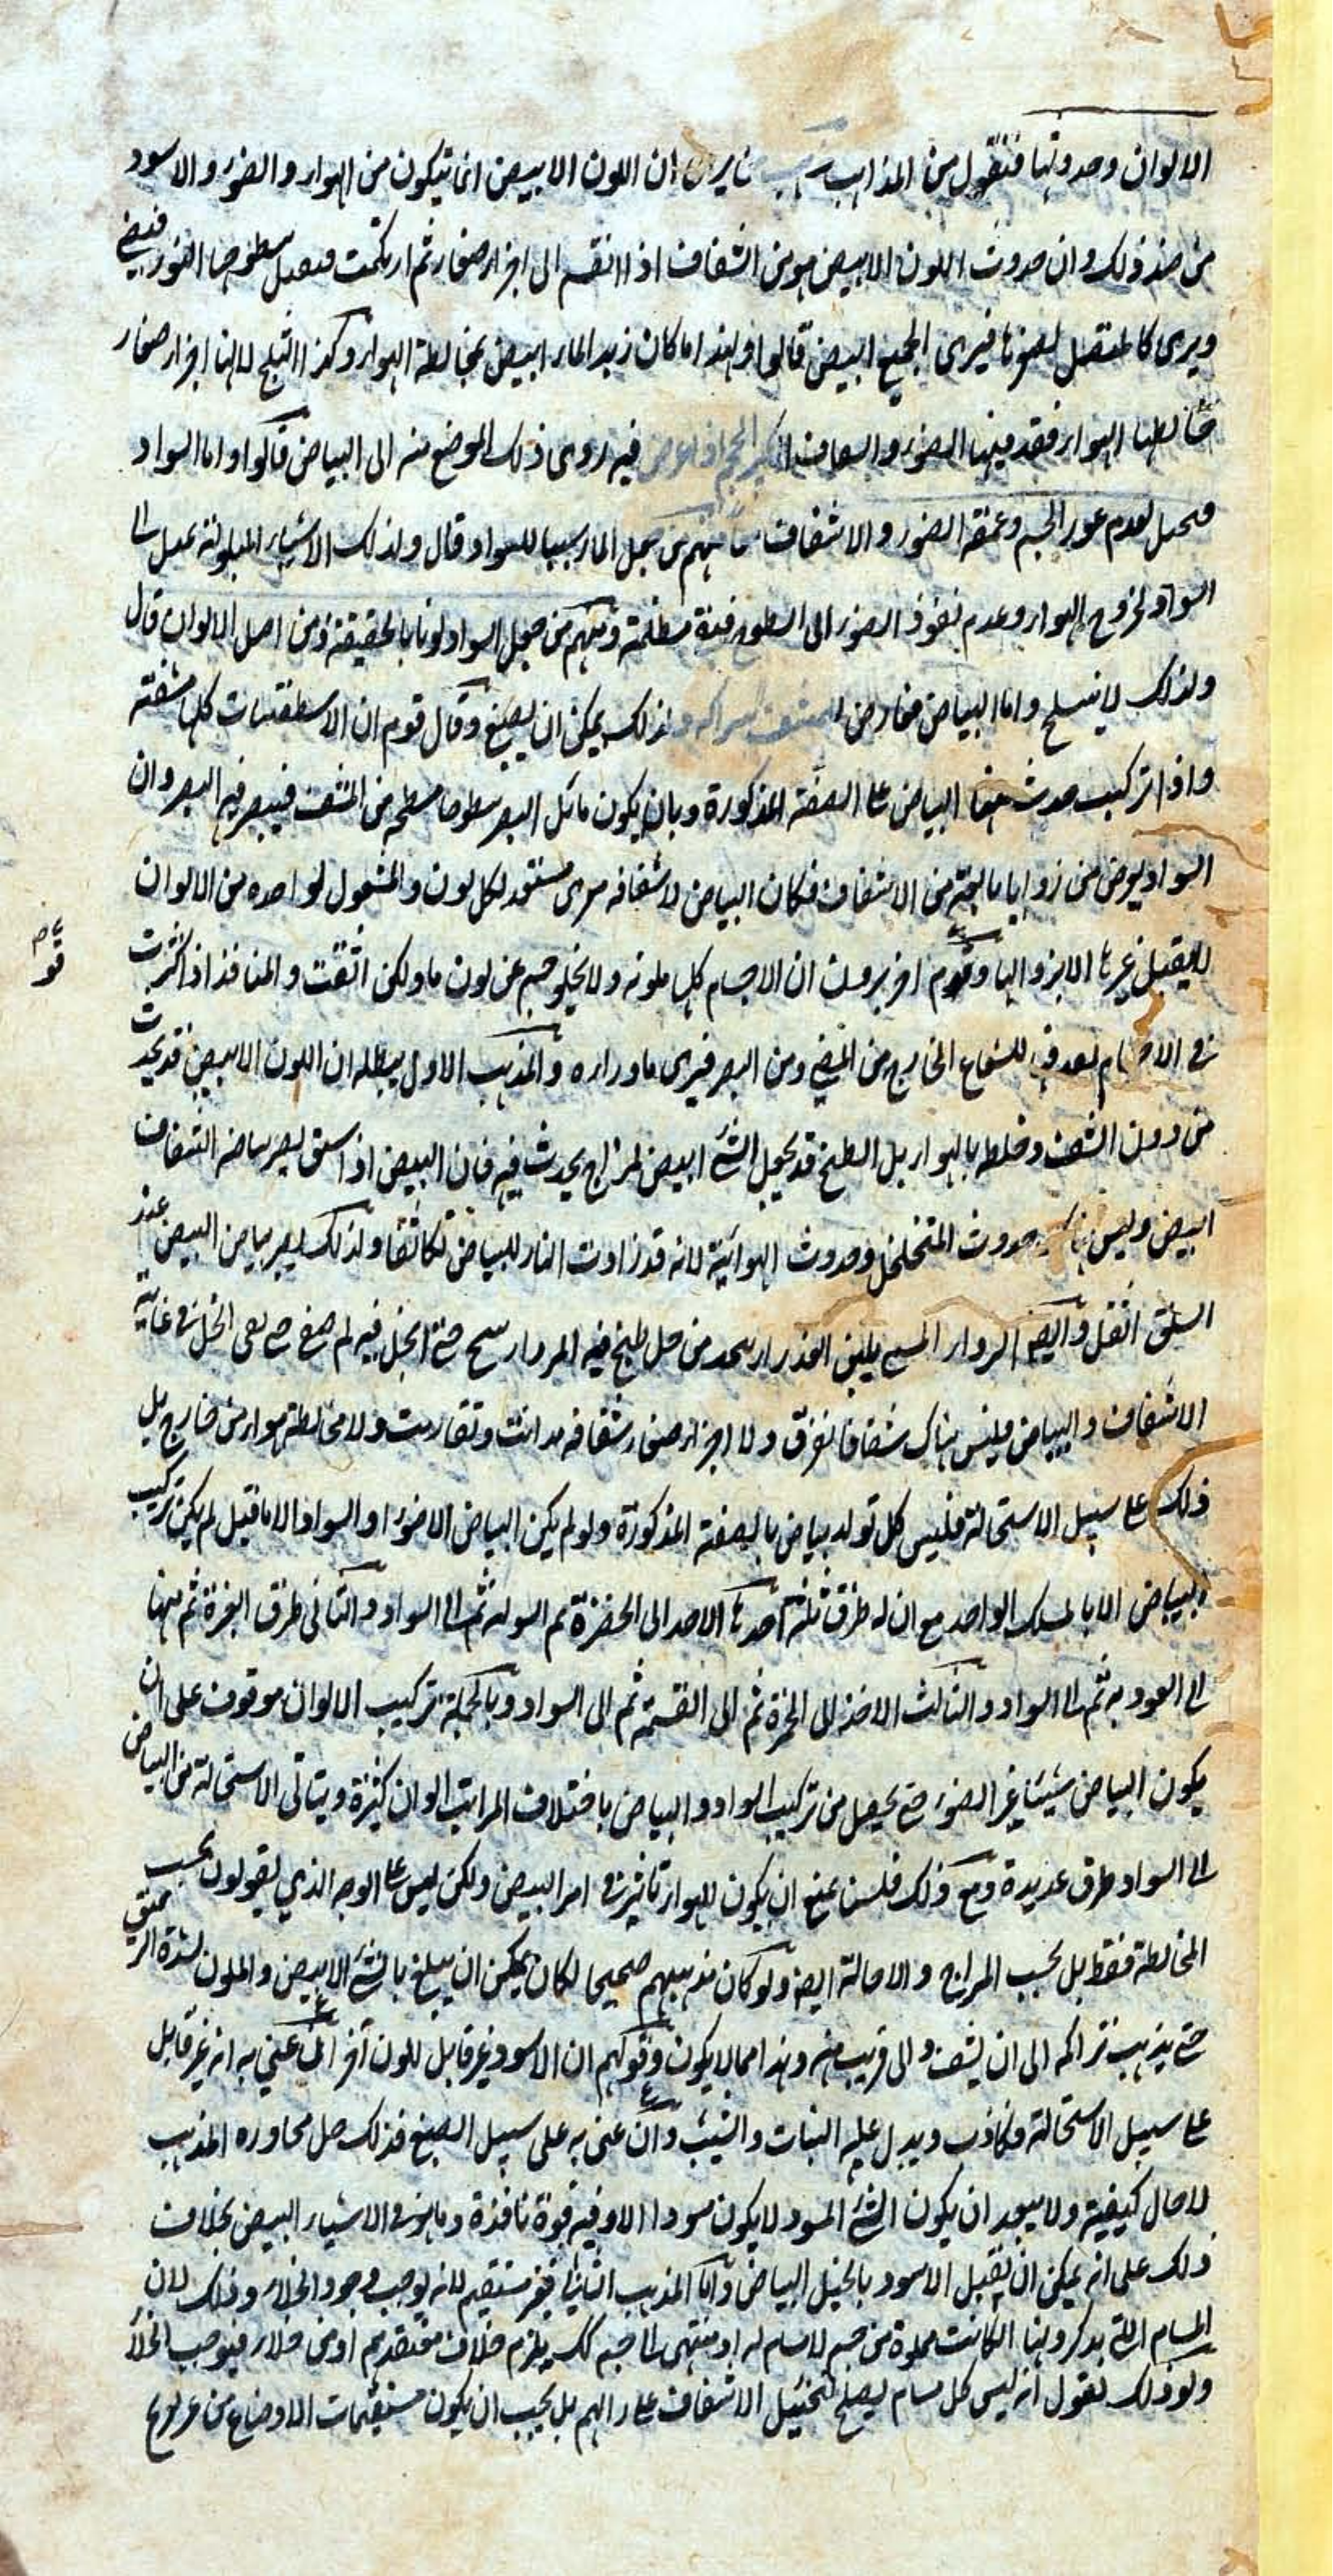 الالوان وحدوثها فنقول من المذاهب ان اللون الابيض انما يتكون من الهواء والضوء والاسود
من ضد ذلك وان حدوث اللون الابيض هو من الشفاف اذا انقسم الى اجزاء صغار ثم ارتكمت سطوحها النور فيضئ
ويرى كالمتصل لصغرها فيرى الجميع ابيض قالوا ولهذا ما كان زبد الماء ابيض بمخالطة الهواء وكذا الثلج لانها اجزاء صغار
خالطها الهواء فنفد فيها الضوء فيه روى ذلك الموضع منه الى البياض قالوا واما السواد
لعدم غور الجسم وعمقه الضوء والاشفاف منهم من جعل الماء سببا للسواد قال ولذلك الاشياء المبلولة تميل الى
السواد لخروج الهواء وعدم نفوذ الضوء الى السطوح مظلمة ومنهم من جعل السواد لونا بالحقيقة ومن اصل الالوان قال
ولذلك لا ينسلخ واما البياض فعارض ولذلك يمكن ان يصبغ وقال قوم ان الاسطقسات كلها مشفة
واذا تركبت حدث منها البياض على الصفة المذكورة وبان يكون ما يلى البصر سطوحا مسطحة من المشف فينفذ فيه البصر وان
السواد يعرض من زوايا من الاشفاف فكان البياض لاشفافه مستعد لكل لون والمشغول لواحده من الالوان
لا يقبل غيرها الا بزوالها وقوم اخر يرون ان الاجسام كلها ملونة ولا يخلو جسم عن لون ما ولكن اتفقت والمنافذ اذا كثرت
قوم
فى الاجسام للشعاع الخارج من المضئ ومن البصر فيرى ما وراءه والمذهب الاول يبطله ان اللون الابيض قد يحدث
من دون الشف وخلطه بالهواء بل الطبخ قد يجعل الشئ ابيض لمزاج يحدث فيه فان البيض اذا سلق يصير بياضه الشفاف
ابيض وليس هناك حدوث المتخلخل وحدوث الهوائية لانه قد زادت النار للبياض تكاثفا ولذلك يصير بياض البيض عند
السلق اثقل وايضا الدواء المسمى بلبن العذراء من خل طبخ فيه حتى انحل فيه ثم صفى حتى بقى الخل فى غاية
الاشفاف والبياض فليس هناك شفافا تفرق ولا اجزاء صغار شفافة تدانت وتقاربت ولا مخالطة هواء من خارج بل
ذلك على سبيل الاستحالة فليس كل تولد بياض بالصفة المذكورة ولو لم يكن البياض الا ضوء او السواد الا ما قيل لم يكن تركيب
البياض الا بالمسلك الواحد مع ان له طرق ثلثة احدها الاخذ الى الخضرة ثم الى السواد والثانى طرق الغبرة ثم منها
الى العودية ثم الى السواد والثالث الاخذ الى الحمرة ثم الى القتمة ثم الى السواد وبالجملة تركيب الالوان موقوف على ان
يكون البياض شيئا غير الضوء حتى يحصل من تركيب السواد والبياض باختلاف المراتب الوان كثيرة ويتاتى الاستحالة من البياض
الى السواد طرق عديدة ومع ذلك فلسنا نمنع ان يكون للهواء تاثير فى امر البيض ولكن ليس على الوجه الذى يقولون بحسب
المخالطة فقط بل بحسب المزاج والاحالة ايضا ولو كان مذهبهم صحيحا لكان يمكن ان يبلغ بالشئ الابيض والملون لشدة
حتى يذهب تراكمه الى ان يشف والى قريب منه وهذا مما لا يكون وقولهم ان الاسود غير قابل للون آخر ان عنى به انه غير قابل
على سبيل الاستحالة فكاذب ويدل عليه النبات والشيب وان عنى به على سبيل الصبغ فذلك حال مجاورة المذهب
لا حال كيفية ولا يبعد ان يكون الشئ المسود لا يكون مسودا الا وفيه قوة نافذة وما يوجد فى الاشياء البيض بخلاف
ذلك على انه يمكن ان يقبل الاسود بالحيل البياض واما المذهب الثانى فغير مستقيم لانه يوجب وجود الخلاء وذلك لان
المسام التى يذكرونها ان كانت مملوة من جسم لا مسام له او منتهى الى جسم كك يلزم خلاف معتقدهم او من خلاء فيوجب الخلا
وبعد ذلك نقول انه ليس كل مسام يصلح لتخييل الاشفاف على رايهم بل يجب ان يكون مستقيمات الاوضاع من غير تعريج